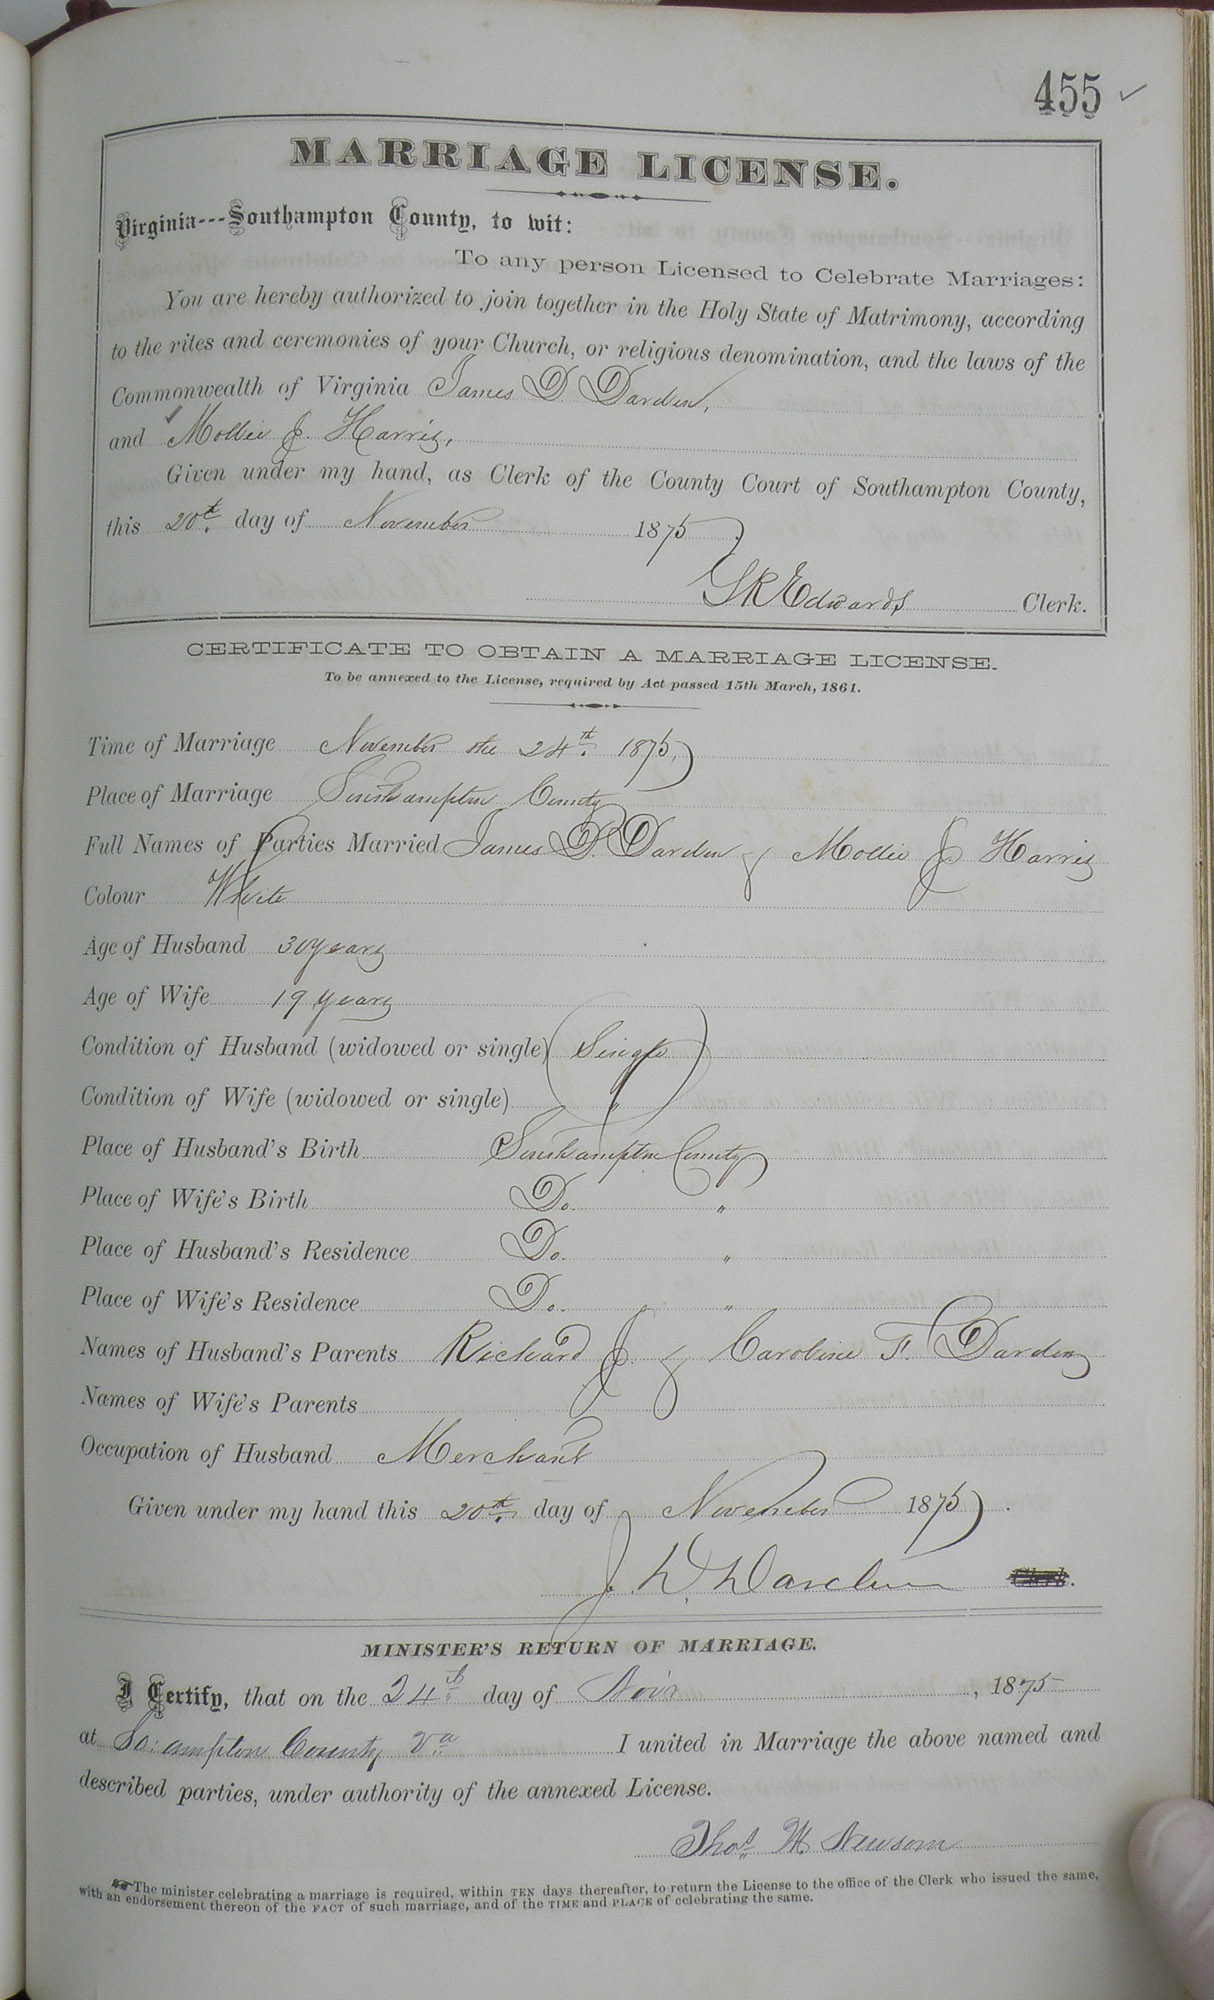 455 ✓
MARRIAGE LICENSE.
Virginia---Southampton County, to wit:
To any person Licensed to Celebrate Marriages:
You are hereby authorized to join together in the Holy State of Matrimony, according
to the rites and ceremonies of your Church, or religious denomination, and the laws of the
Commonwealth of Virginia James D. Darden,
and Mollie J. Harris,
Given under my hand, as Clerk of the County Court of Southampton County,
this 20th. day of November 1875
LREdwards Clerk.
CERTIFICATE TO OBTAIN A MARRIAGE LICENSE.
To be annexed to the License, required by Act passed 15th March, 1861.
Time of Marriage November the 24th. 1875,
Place of Marriage Southampton County
Full Names of Parties Married James D. Darden & Mollie J Harris
Colour White
Age of Husband 30 years
Age of Wife 19 years
Condition of Husband (widowed or single) Single
Condition of Wife (widowed or single) "
Place of Husband's Birth Southampton County
Place of Wife's Birth Do. "
Place of Husband's Residence Do. "
Place of Wife's Residence Do. "
Names of Husband's Parents Richard J. & Caroline F. Darden
Names of Wife's Parents
Occupation of Husband Merchant
Given under my hand this 20th. day of November 1875 .
J. D. Darden Clerk.
MINISTER'S RETURN OF MARRIAGE.
I Certify, that on the 24th day of Nov'r , 1875
at So:ampton County Va I united in Marriage the above named and
described parties, under authority of the annexed License.
Thos. W. Newsom
☞The minister celebrating a marriage is required, within TEN days thereafter, to return the License to the office of the Clerk who issued the same,
with an endorsement thereon of the FACT of such marriage, and of the TIME and PLACE of celebrating the same.